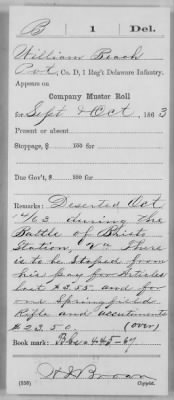 B | 1 | Del.
William Beach
Pvt., Co. D, 1 Reg't Delaware Infantry.
Appears on
Company Muster Roll
for Sept & Oct, 1863
Present or absent
Stoppage, $ 100 for
Due Gov't, $ 100 for
Remarks: Deserted Oct
14/63 during the
Battle of Bristo
Station, Va There
is to be Stoped from
his pay for Articles
lost $3.55 and for
one Springfield
Rifle and accutrments
$23.50 (over)
Book mark:
(358) Copyist.